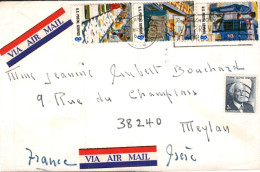 VIA AIR MAIL
Mme Jeannie Imbert Bouchard
9 Rue du Champlain
38240
Meylan
France
VIA AIR MAIL
Isère